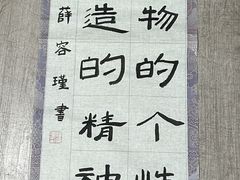 物的个性
造的精神
薛容瑾書